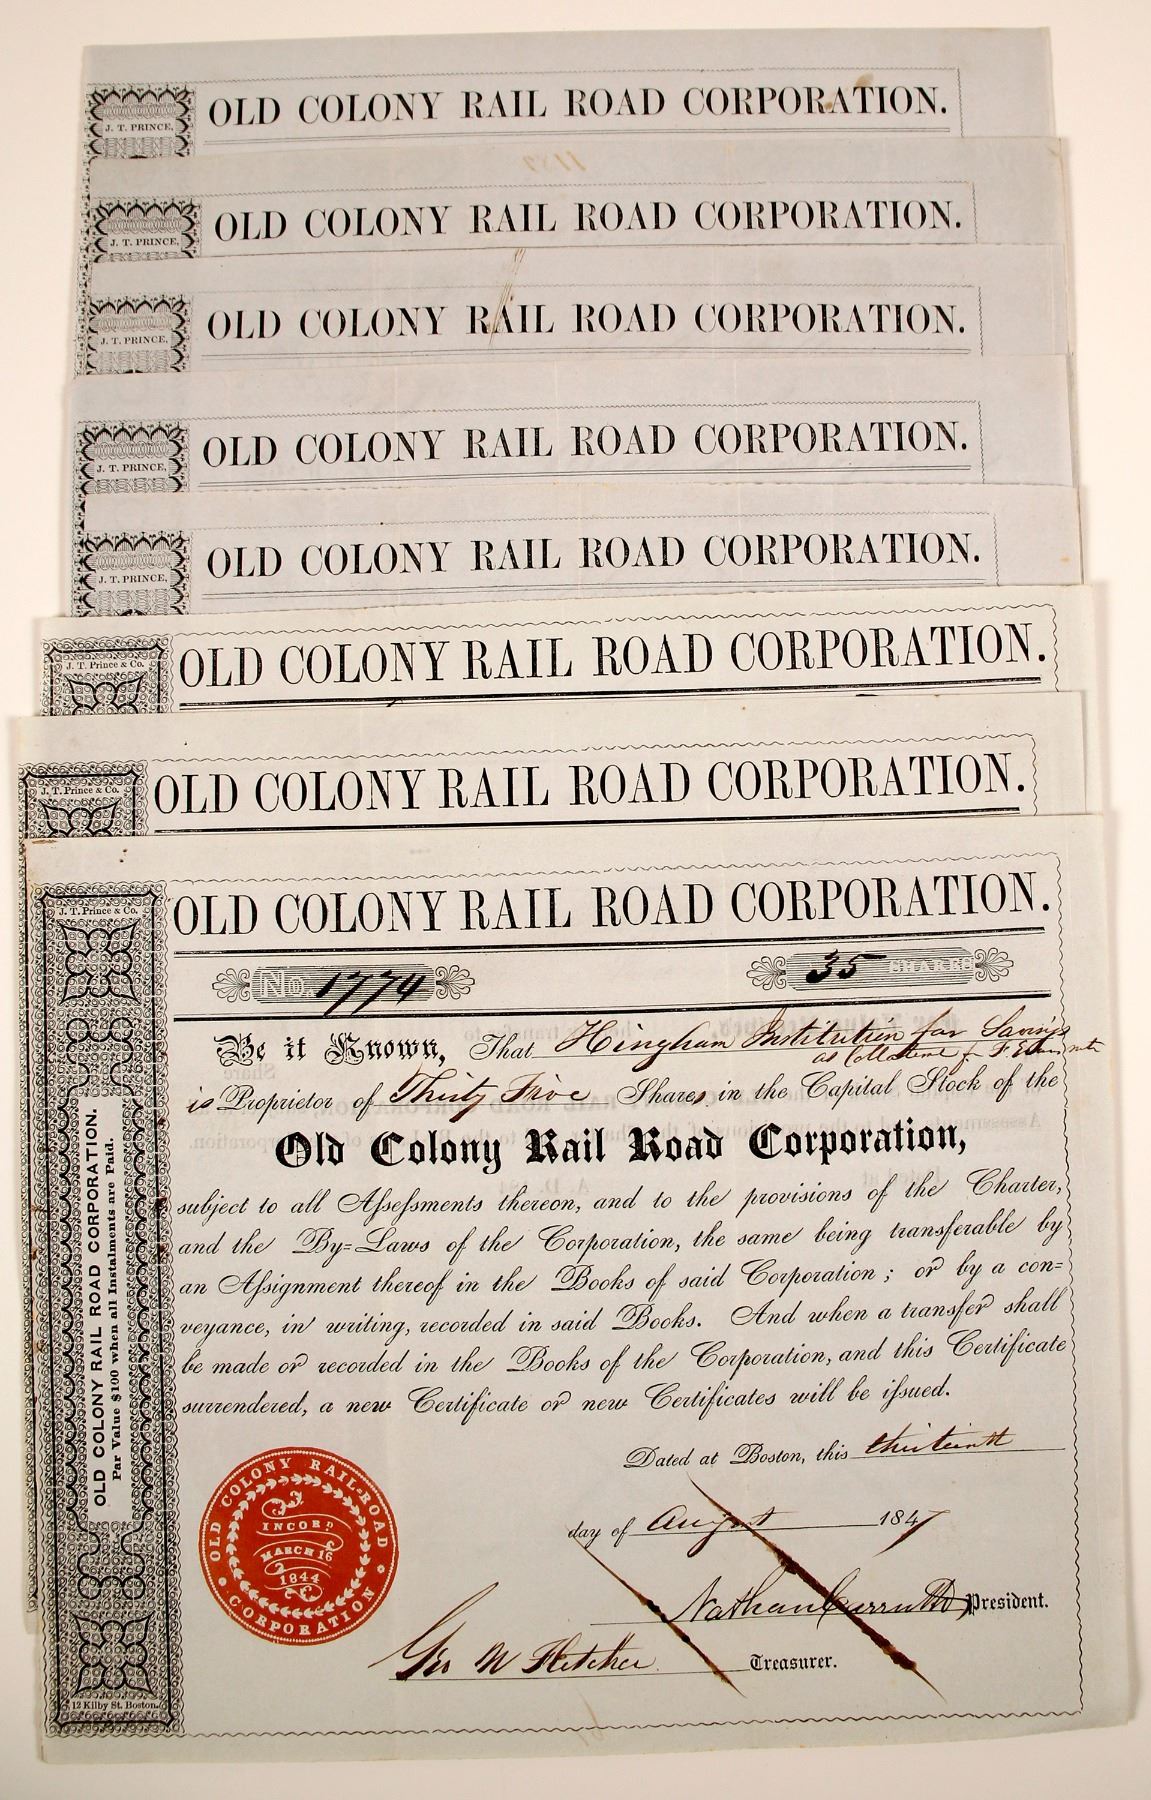 OLD COLONY RAIL ROAD CORPORATION.
J. T. PRINCE,
OLD COLONY RAIL ROAD CORPORATION.
J. T. PRINCE,
OLD COLONY RAIL ROAD CORPORATION.
J. T. PRINCE,
OLD COLONY RAIL ROAD CORPORATION.
J. T. PRINCE,
OLD COLONY RAIL ROAD CORPORATION.
J. T. PRINCE,
J. T. Prince & Co.
OLD COLONY RAIL ROAD CORPORATION.
J. T. Prince & Co.
OLD COLONY RAIL ROAD CORPORATION.
J. T. Prince & Co.
OLD COLONY RAIL ROAD CORPORATION.
No. 1774 35 SHARES
Be it Known, That Hingham Institution for Savings
as Collateral for
is Proprietor of Thirty Five Shares in the Capital Stock of the
Old Colony Rail Road Corporation,
subject to all Assessments thereon, and to the provisions of the Charter,
and the By=Laws of the Corporation, the same being transferable by
an Assignment thereof in the Books of said Corporation; or by a con=
veyance, in writing, recorded in said Books. And when a transfer shall
be made or recorded in the Books of the Corporation, and this Certificate
surrendered, a new Certificate or new Certificates will be issued.
Dated at Boston, this thirteenth
day of August 1847
Nathan Carruth President.
Geo W Fletcher Treasurer.
OLD COLONY RAIL ROAD CORPORATION.
Par Value $100 when all Instalments are Paid.
12 Kilby St. Boston.
OLD COLONY RAIL=ROAD
CORPORATION
INCORD
MARCH 16
1844